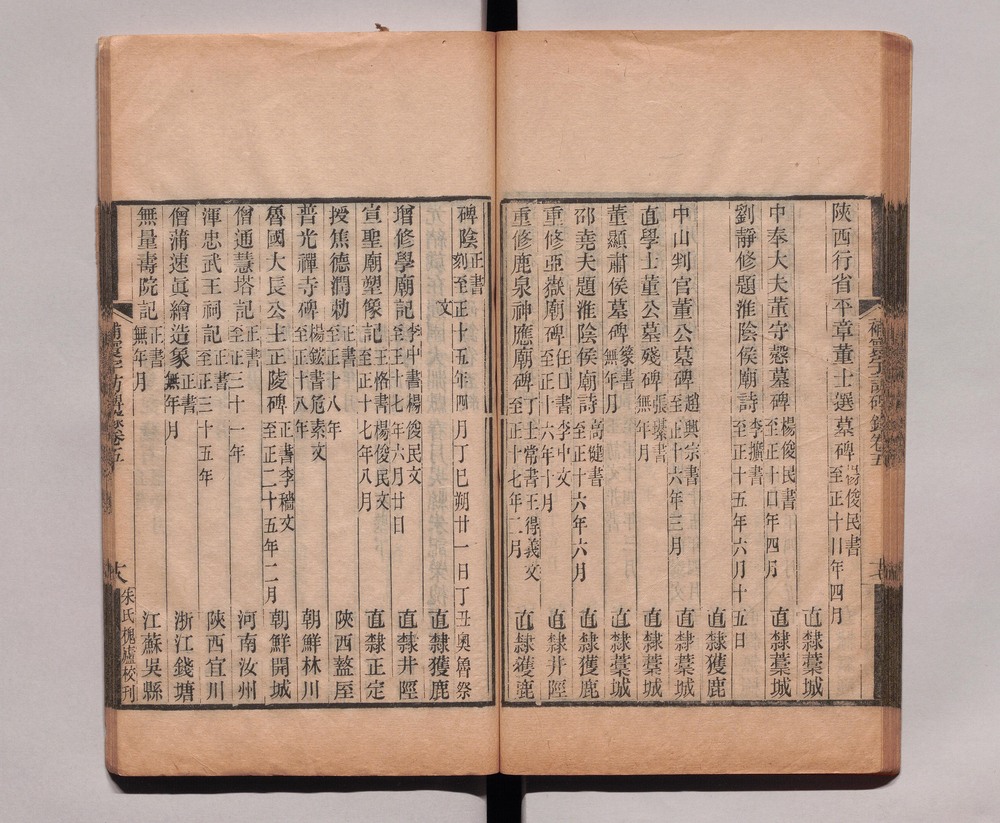 陝西行省平章董士選墓碑 楊俊民書 至正十 年四月 直隸藁城
中奉大夫董守愨墓碑 楊俊民書 至正十 年四月 直隸藁城
劉靜修題淮陰侯廟詩 李擴書 至正十五年六月十五日 直隸獲鹿
中山判官董公墓碑 趙興宗書 至正十六年三月 直隸藁城
直學士董公墓殘碑 張 書 無年月 直隸藁城
董顯肅侯墓碑 篆書 無年月 直隸藁城
邵堯夫題淮陰侯廟詩 高健書 至正十六年六月 直隸獲鹿
重修亞嶽廟碑 任 書 李中文 至正十六年十月 直隸井陘
重修鹿泉神應廟碑 丁士常書 王得義文 至正十七年二月 直隸獲鹿
碑陰 正書 刻至正十五年四月丁巳朔廿一日丁丑奧魯祭文 直隸獲鹿
增修學廟記 李中書 楊俊民文 至正十七年六月廿日 直隸井陘
宣聖廟塑像記 王恪書 楊俊民文 至正十七年八月 直隸正定
授焦德潤勅 正書 至正十八年 陝西盩厔
普光禪寺碑 楊鉉書 危素文 至正十八年 朝鮮林川
魯國大長公主正陵碑 正書 李穡文 至正二十五年二月 朝鮮開城
僧通慧塔記 正書 至正三十一年 河南汝州
渾忠武王祠記 正書 至正三十五年 陝西宜川
僧蒲速眞繪造象 正書 無年月 浙江錢塘
無量壽院記 正書 無年月 江蘇吳縣
補寰宇訪碑錄卷五
朱氏槐廬校刊